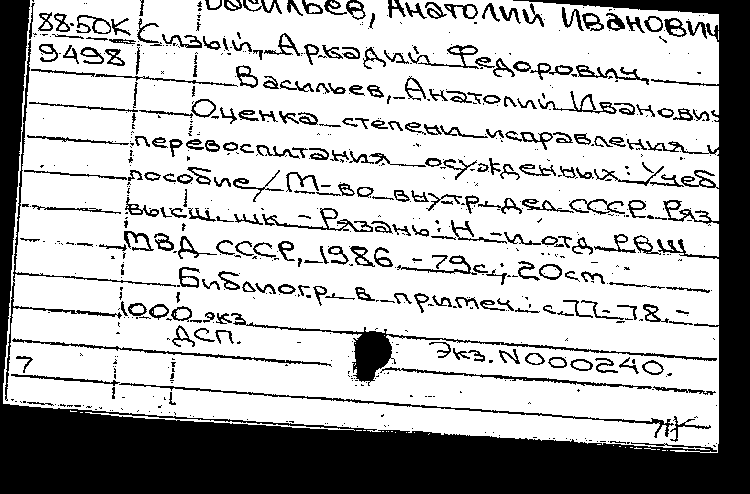 Васильев, Анатолий Иванович
88-50К Сизый, Аркадий Федорович,
9498
Васильев, Анатолий Иванович
Оценка степени исправления и
перевоспитания осужденных: Учеб.
пособие / М-во внутр. дел СССР. Ряз.
высш. шк. - Рязань: Н.-и. отд. РВШ
МВД СССР, 1986. - 79с.; 20см.
Библиогр. в примеч.: с. 77-78. -
1000 экз.
ДСП. Экз. N000240.
7